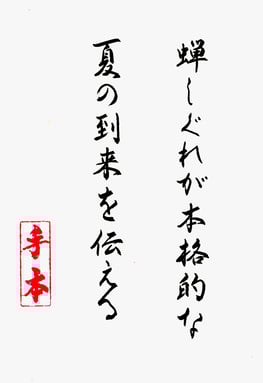 蝉しぐれが本格的な
夏の到来を伝える
手本